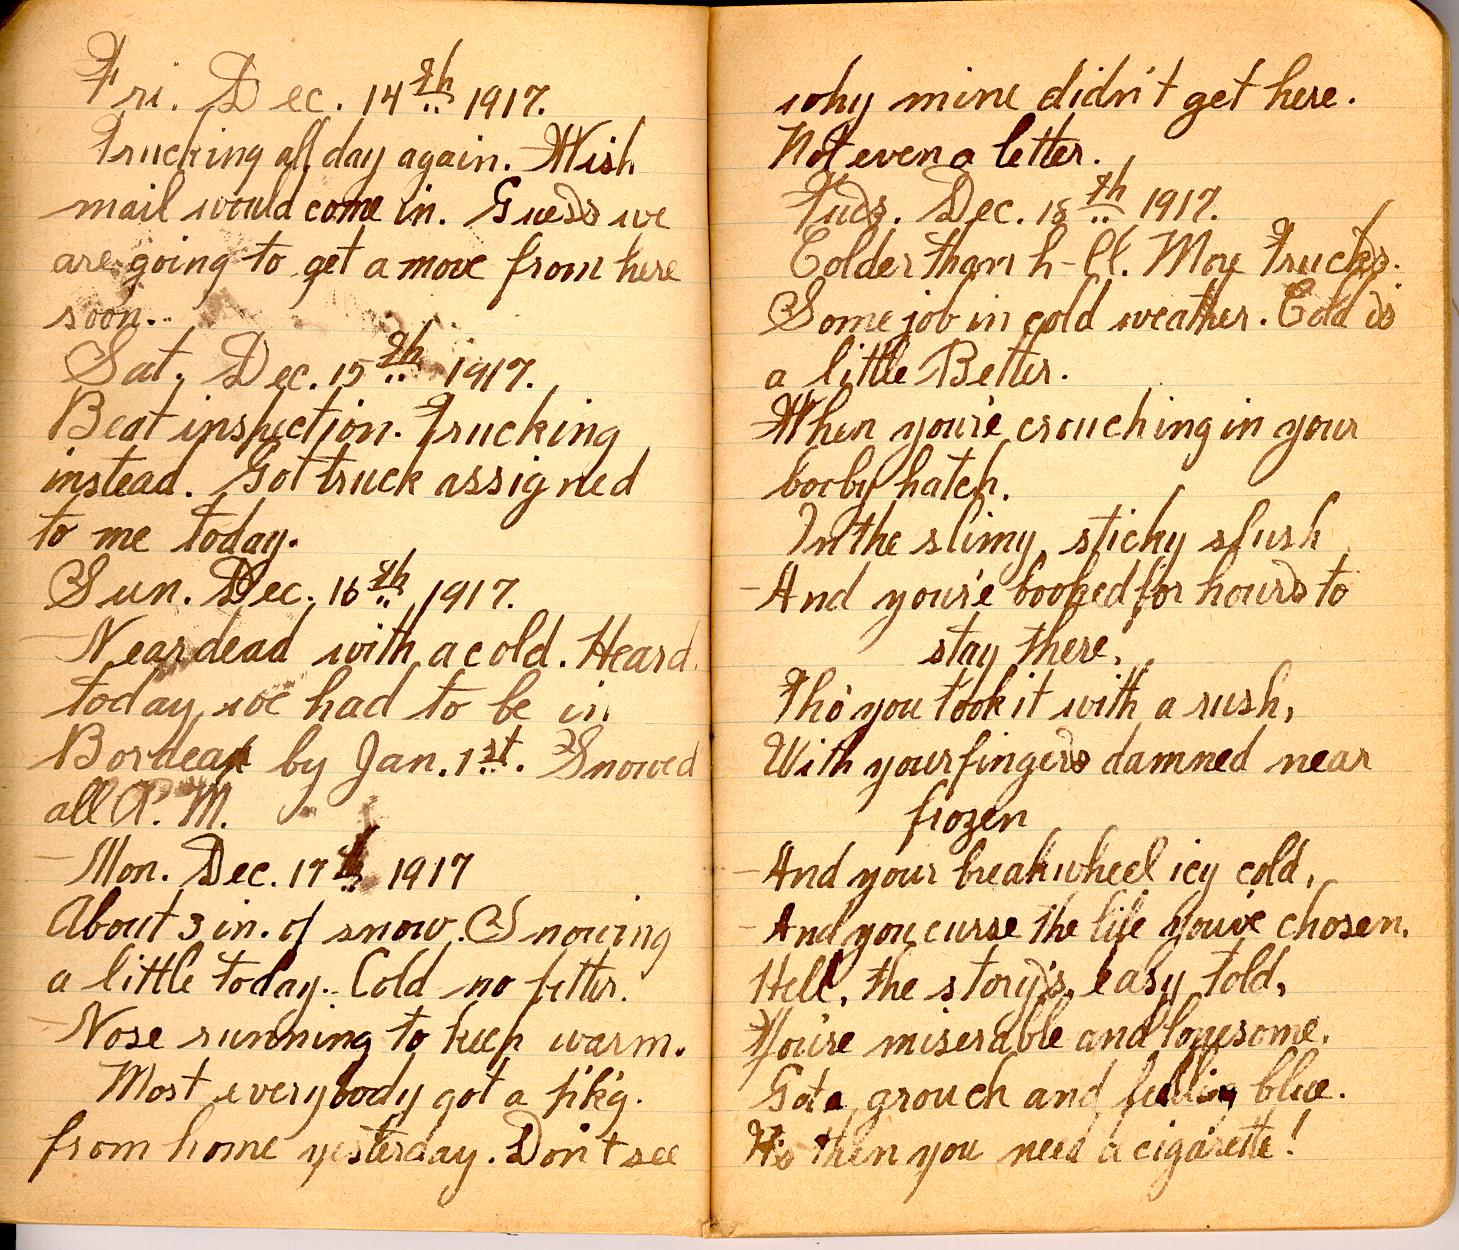 Fri. Dec. 14th 1917.
Trucking all day again. Wish
mail would come in. Guess we
are going to get a move from here
soon.
Sat. Dec. 15th 1917.
Beat inspection. Trucking
instead. Got truck assigned
to me today.
Sun. Dec. 16th 1917.
Near dead with a cold. Heard
today we had to be in
Bordeax by Jan. 1st. Snowed
all P. M.
Mon. Dec. 17th 1917
About 3 in. of snow. Snowing
a little today. Cold no better.
Nose running to keep warm.
Most everybody got a p'k'g.
from home yesterday. Don't see
why mine didn't get here.
Not even a letter.
Tues. Dec. 18th 1917.
Colder than h-ll. More Trucks.
Some job in cold weather. Cold is
a little Better.
When you're crouching in your
booby hatch.
In the slimy, sticky slush
And you're booked for hours to
stay there,
Tho' you took it with a rush,
With your fingers damned near
frozen
And your breakwheel icy cold,
And you curse the life you've chosen.
Hell, the story's easy told,
You're miserable and lonesome.
Got a grouch and feeling blue.
It's then you need a cigarette!